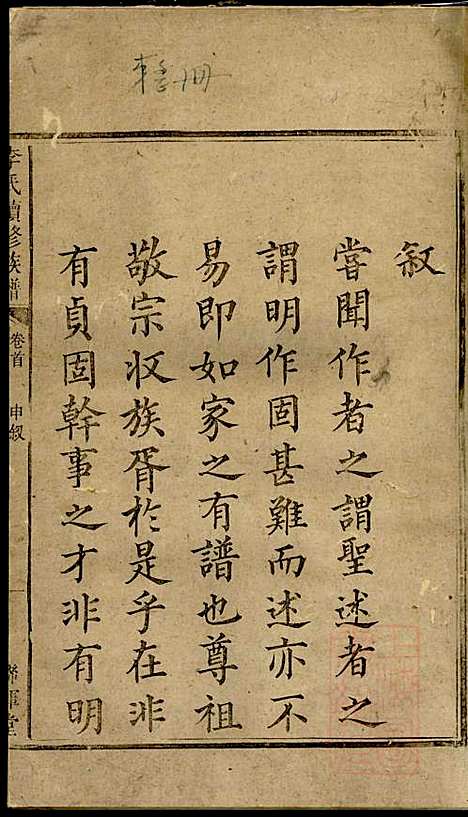 整冊
叙
嘗聞作者之謂聖述者之
謂明作固甚難而述亦不
易即如家之有譜也尊祖
敬宗收族胥於是乎在非
有貞固幹事之才非有明
李氏續修族譜
卷首
申叙
一
堂